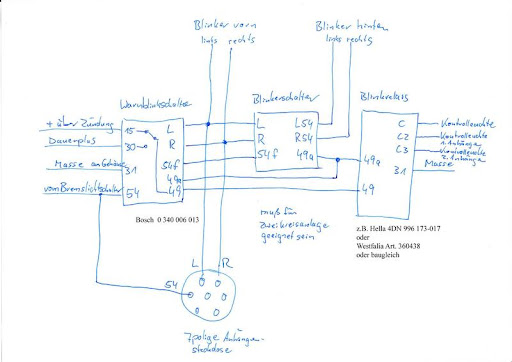 Blinker vorn
links rechts
Blinker hinten
links rechts
Warnblinkschalter
Blinkerschalter
Blinkrelais
+ über Zündung
Dauerplus
Masse am Gehäuse
vom Bremslichtschalter
15
30
31
54
L
R
54f
49a
49
L
R
54f
L54
R54
49a
C
C2
C3
31
49a
49
Kontrolleuchte
Kontrolleuchte
1. Anhänger
Kontrolleuchte
2. Anhänger
Masse
Bosch 0 340 006 013
muß für
Zweikreisanlage
geeignet sein
z.B. Hella 4DN 996 173-017
oder
Westfalia Art. 360438
oder baugleich
54
L
R
7polige Anhänge-
steckdose